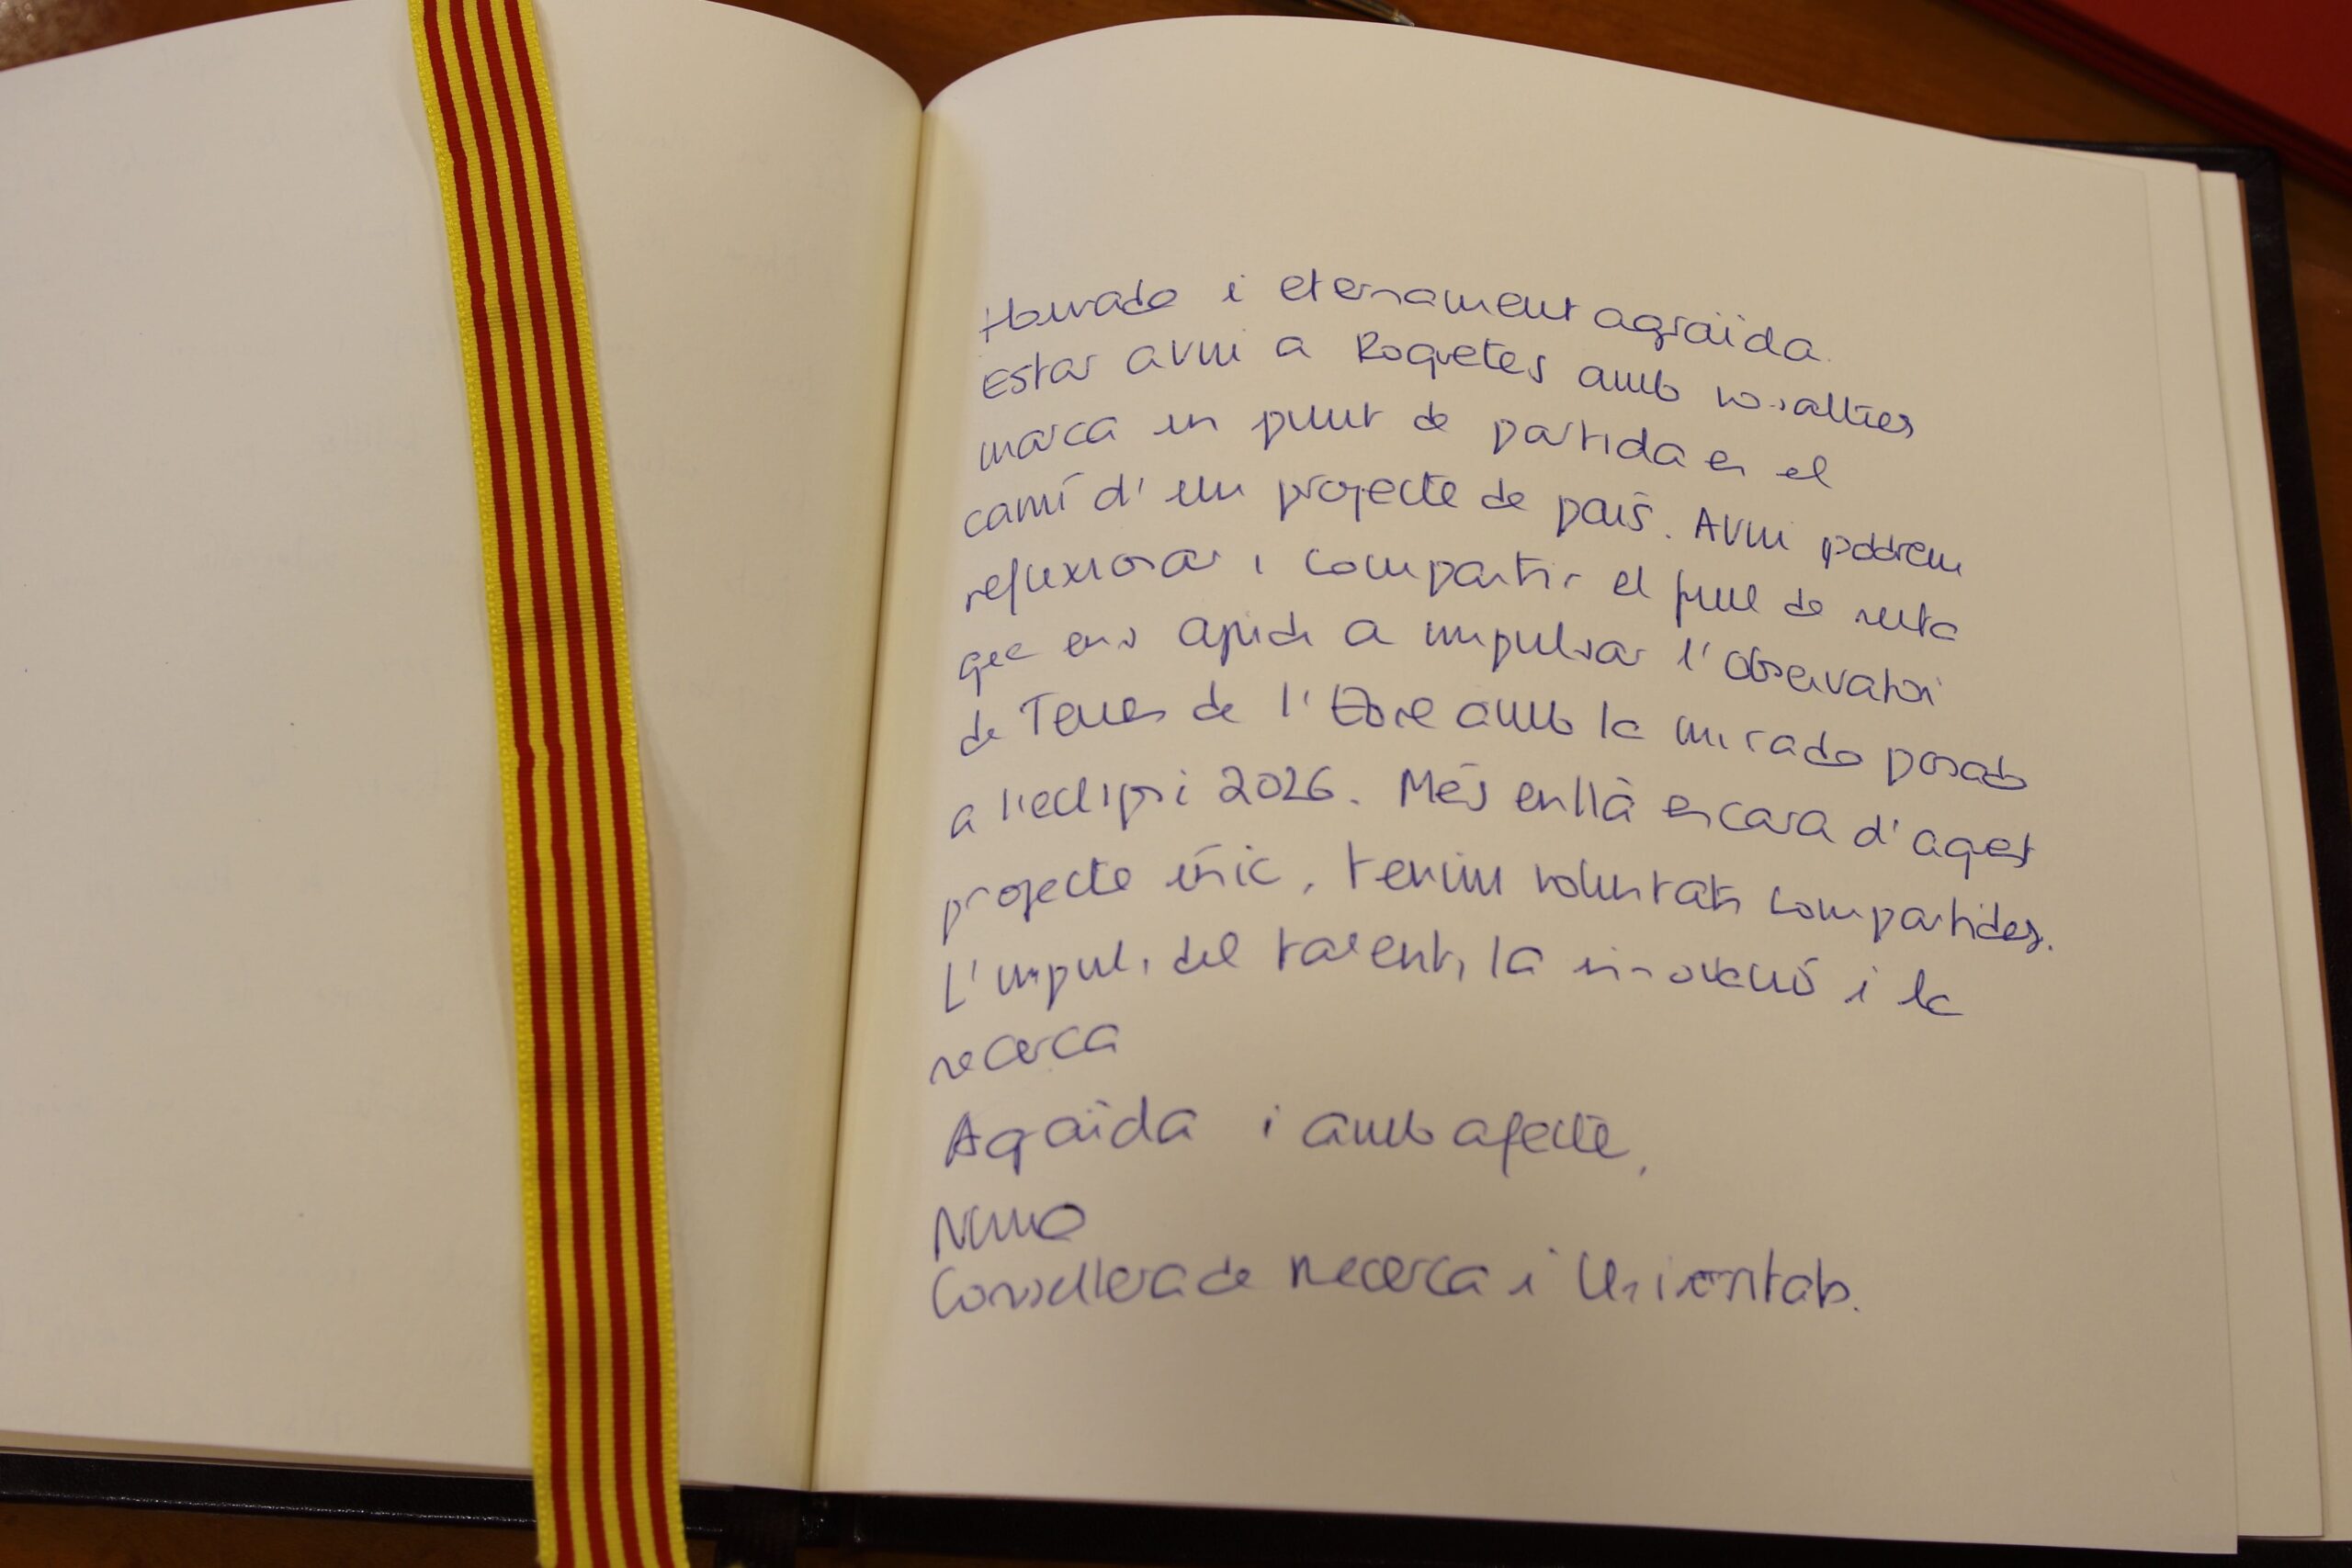 Honrada i eternament agraïda.
Estar avui a Roquetes amb vosaltres
marca un punt de partida en el
camí d'un projecte de país. Avui podrem
reflexionar i compartir el full de ruta
que ens ajudi a impulsar l'observatori
de Terres de l'Ebre amb la mirada posada
a l'eclipsi 2026. Més enllà encara d'aquest
projecte únic, tenim voluntats compartides.
L'impuls del talent, la innovació i la
recerca
Agraïda i amb afecte,
Consellera de Recerca i Universitats.